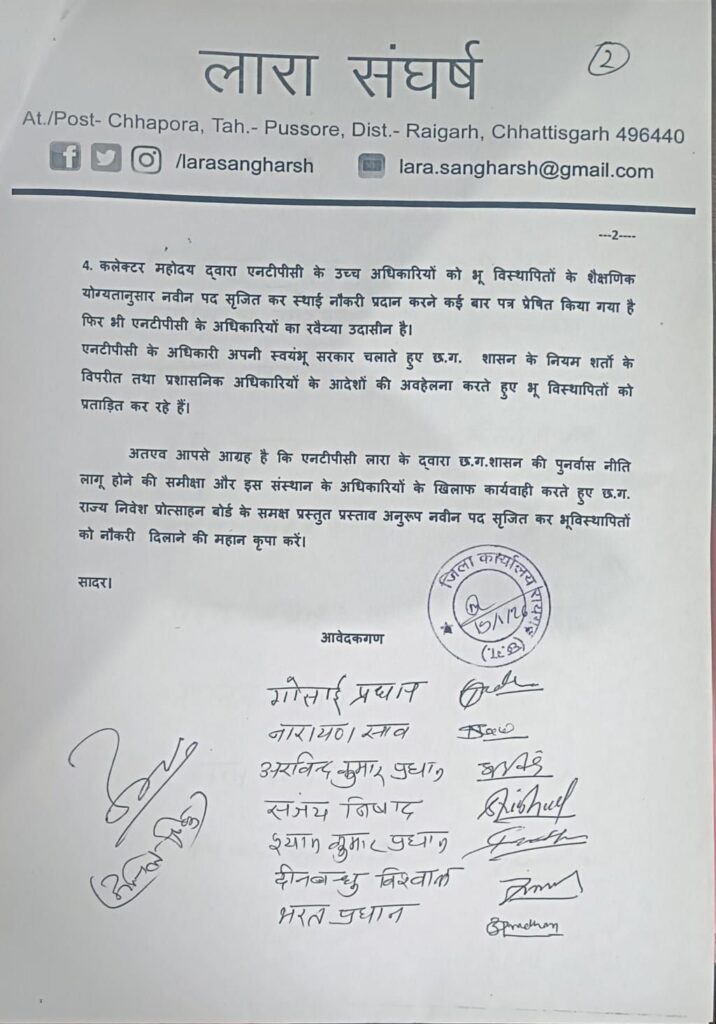 लारा संघर्ष
2
At./Post- Chhapora, Tah.- Pussore, Dist.- Raigarh, Chhattisgarh 496440
/larasangharsh lara.sangharsh@gmail.com
---2----
4. कलेक्टर महोदय द्वारा एनटीपीसी के उच्च अधिकारियों को भू विस्थापितों के शैक्षणिक
योग्यतानुसार नवीन पद सृजित कर स्थाई नौकरी प्रदान करने कई बार पत्र प्रेषित किया गया है
फिर भी एनटीपीसी के अधिकारियों का रवैय्या उदासीन है।
एनटीपीसी के अधिकारी अपनी स्वयंभू सरकार चलाते हुए छ.ग. शासन के नियम शर्तो के
विपरीत तथा प्रशासनिक अधिकारियों के आदेशों की अवहेलना करते हुए भू विस्थापितों को
प्रताड़ित कर रहे हैं।
अतएव आपसे आग्रह है कि एनटीपीसी लारा के द्वारा छ.ग.शासन की पुनर्वास नीति
लागू होने की समीक्षा और इस संस्थान के अधिकारियों के खिलाफ कार्यवाही करते हुए छ.ग.
राज्य निवेश प्रोत्साहन बोर्ड के समक्ष प्रस्तुत प्रस्ताव अनुरूप नवीन पद सृजित कर भूविस्थापितों
को नौकरी दिलाने की महान कृपा करें।
सादर।
जिला कार्यालय रायगढ़ (छ.ग.)
आवेदकगण
गोसाई प्रधान
नारायण साव
अरविन्द कुमार प्रधान
संजय निषाद
श्याम कुमार प्रधान
दीनबन्धु विश्वाल
भरत प्रधान